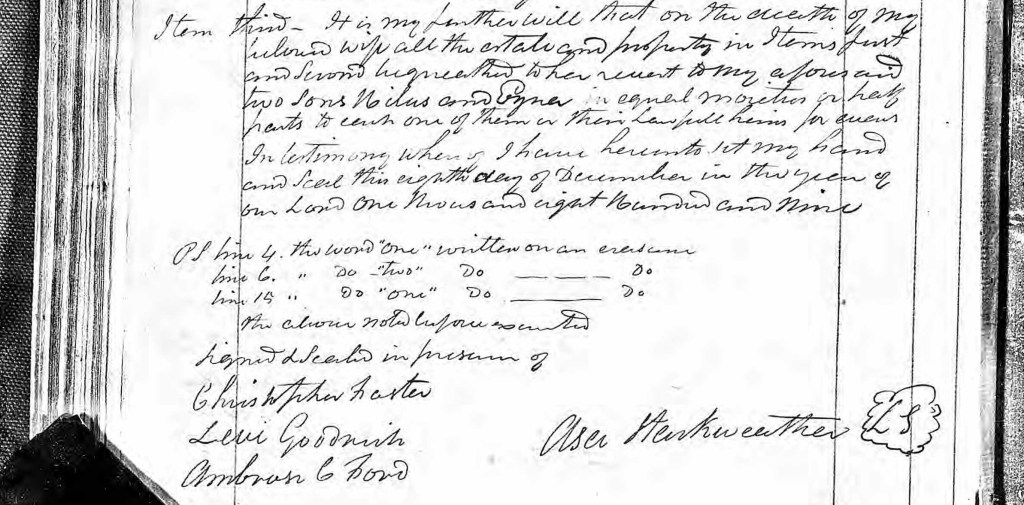 Item third - It is my further will that on the death of my
beloved wife all the estate and property in Items first
and Second bequeathed to her revert to my aforesaid
two Sons Nilus and in equal moieties or half
parts to each one of them or their Lawfull heirs for ever
In testimony whereof I have hereunto set my hand
and Seal this eighth day of December in the year of
our Lord One thousand eight Hundred and Nine
PS line 4. the word "One" written on an erasure
line 6. " Do "two" Do — — — Do
line 15 " Do "one" Do ——— Do
the above noted before executed
Signed & Sealed in presence of
Christopher Foster
Levi Goodrich
Asa Starkweather L S
Ambrose C Ford